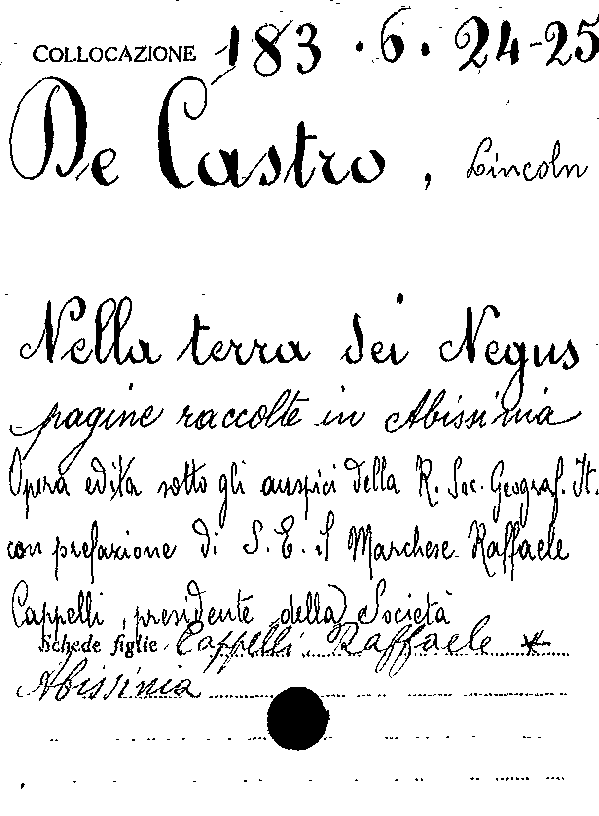 COLLOCAZIONE 183.6.24-25
De Castro, Lincoln
Nella terra dei Negus
pagine raccolte in Abissinia
Opera edita sotto gli auspici della R. Soc. Geograf. It.
con prefazione di S. E. il Marchese Raffaele
Cappelli, presidente della Società
Schede figlie Cappelli, Raffaele *
Abissinia